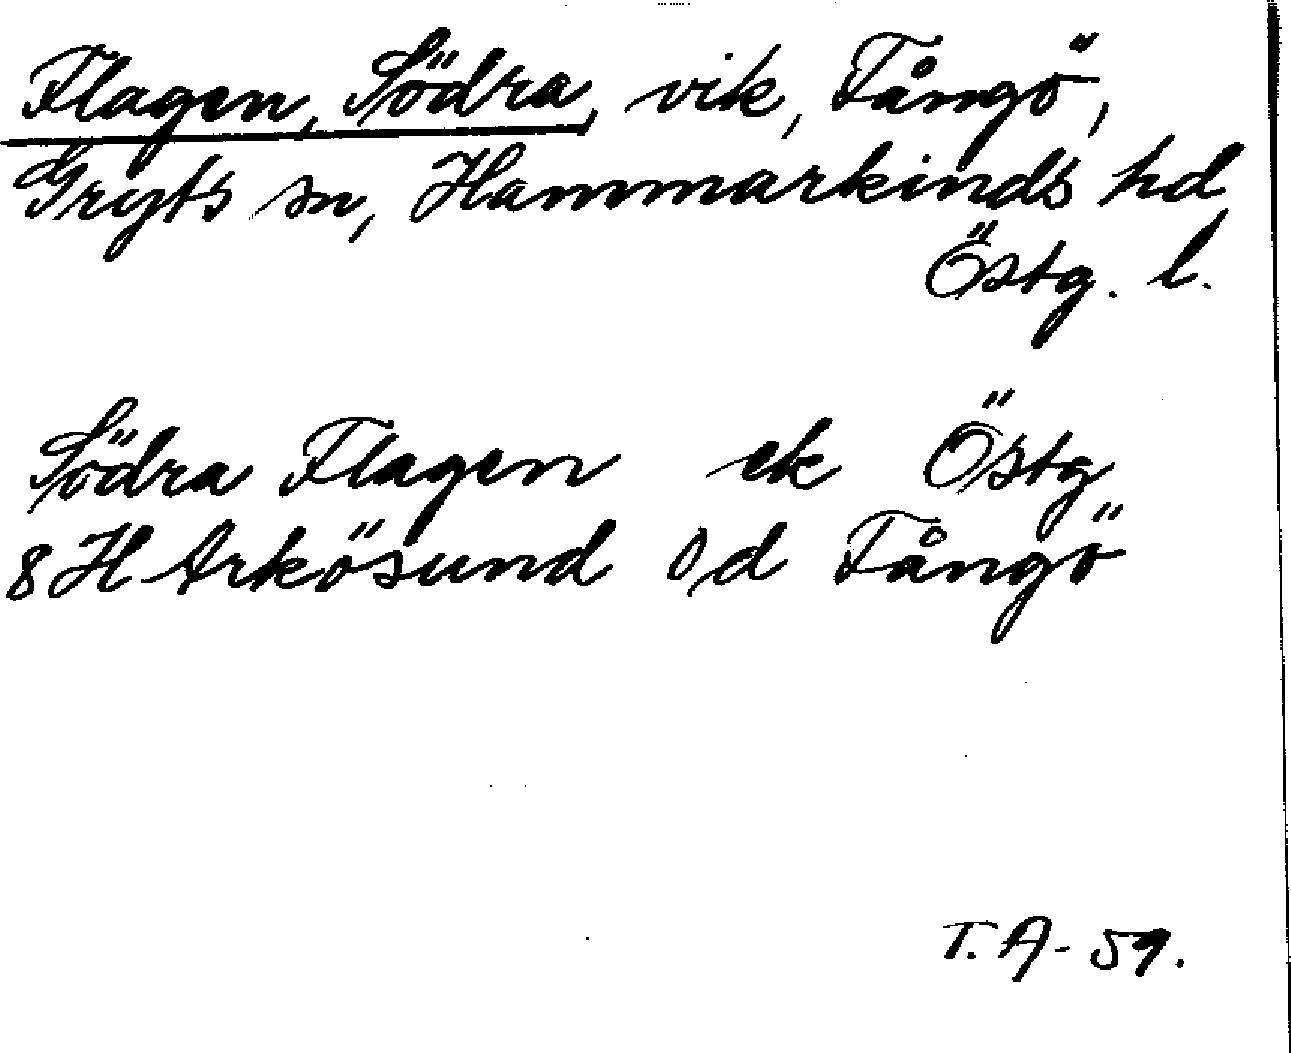 Flagen, Södra, vik, Fångö,
Gryts sn, Hammarkinds hd
Östg. l.
Södra Flagen ek Östg
8H Arkösund Od Fångö
T.A-59.